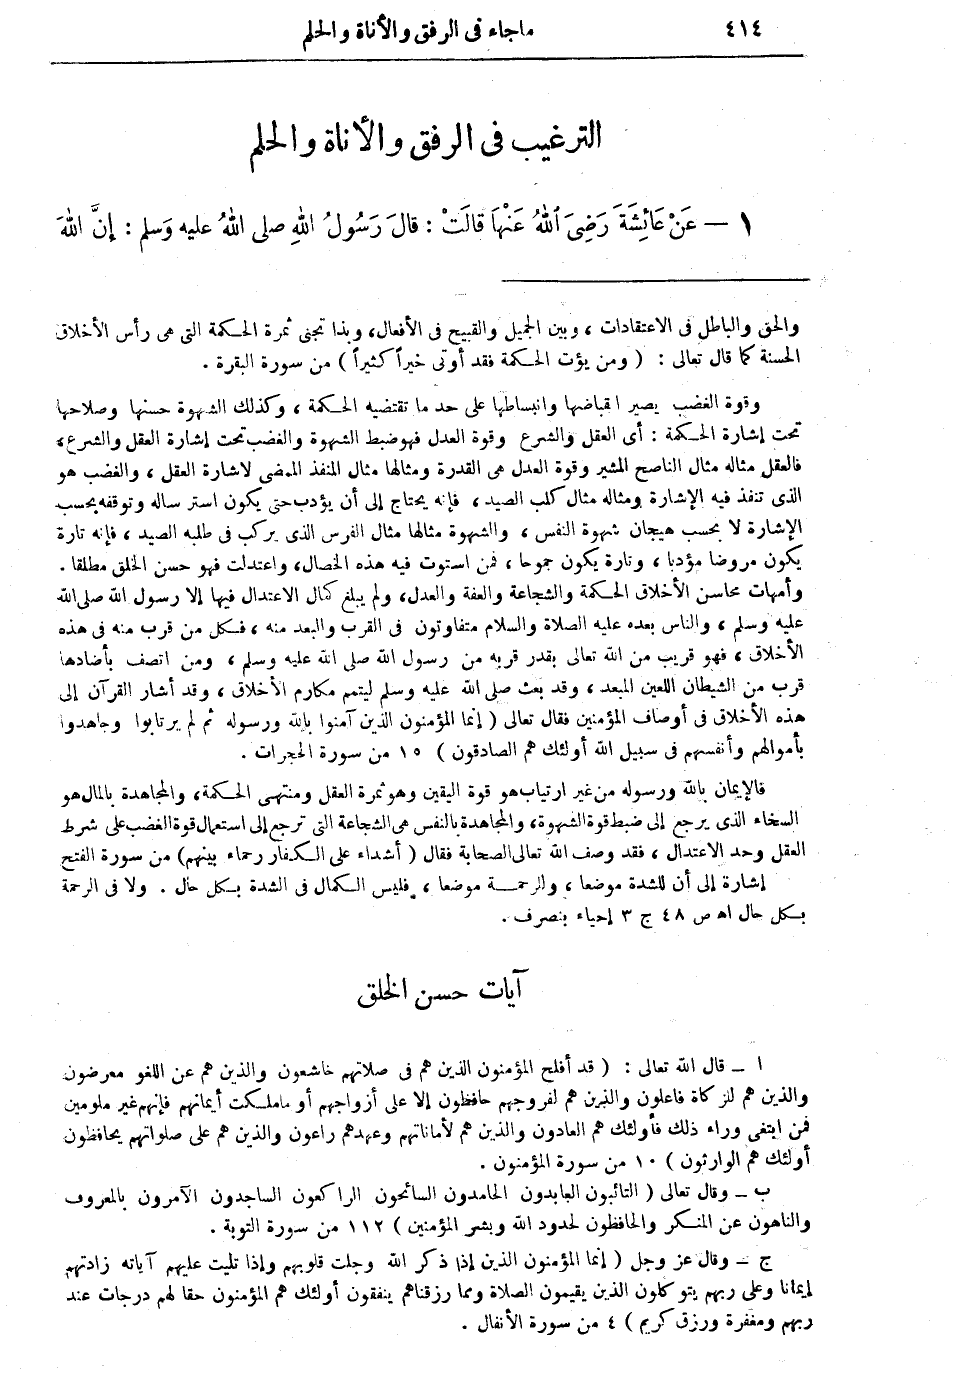 ٤١٤
ماجاء فى الرفق والأناة والحلم
الترغيب فى الرفق والأناة والحلم
١ — عَنْ عَائِشَةَ رَضِىَ اللهُ عَنْهَا قَالَتْ : قَالَ رَسُولُ اللهِ صلى اللهُ عليه وَسلم : إِنَّ اللهَ
والحق والباطل فى الاعتقادات ، وبين الجميل والقبيح فى الأفعال، وبذا تجنى ثمرة الحكمة التى هى رأس الأخلاق
الحسنة كما قال تعالى : ( ومن يؤت الحكمة فقد أوتى خيراً كثيراً ) من سورة البقرة .
وقوة الغضب يصير انقباضها وانبساطها على حد ما تقتضيه الحكمة ، وكذلك الشهوة حسنها وصلاحها
تحت إشارة الحكمة : أى العقل والشرع وقوة العدل فهو ضبط الشهوة والغضب تحت إشارة العقل والشرع،
فالعقل مثاله مثال الناصح المشير وقوة العدل هى القدرة ومثالها مثال المنفذ الممضى لاشارة العقل ، والغضب هو
الذى تنفذ فيه الإشارة ومثاله مثال كلب الصيد ، فإنه يحتاج إلى أن يؤدب حتى يكون استر ساله وتوقفه بحسب
الإشارة لا بحسب هيجان شهوة النفس ، والشهوة مثالها مثال الفرس الذى يركب فى طلبه الصيد ، فإنه تارة
يكون مروضا مؤدبا ، وتارة يكون جموحا ، فمن استوت فيه هذه الخصال، واعتدلت فهو حسن الخلق مطلقا .
وأمهات محاسن الأخلاق الحكمة والشجاعة والعفة والعدل، ولم يبلغ كمال الاعتدال فيها إلا رسول الله صلى الله
عليه وسلم ، والناس بعده عليه الصلاة والسلام متفاوتون فى القرب والبعد منه ، فكل من قرب منه فى هذه
الأخلاق ، فهو قريب من الله تعالى بقدر قربه من رسول الله صلى الله عليه وسلم ، ومن اتصف بأضادها
قرب من الشيطان اللعين المبعد ، وقد بعث صلى الله عليه وسلم ليتمم مكارم الأخلاق ، وقد أشار القرآن إلى
هذه الأخلاق فى أوصاف المؤمنين فقال تعالى ( إنما المؤمنون الذين آمنوا بالله ورسوله ثم لم يرتابوا وجاهدوا
بأموالهم وأنفسهم فى سبيل الله أولئك هم الصادقون ) ١٥ من سورة الحجرات .
فالإيمان بالله ورسوله من غير ارتياب هو قوة اليقين وهو ثمرة العقل ومنتهى الحكمة، والمجاهدة بالمال هو
السخاء الذى يرجع إلى ضبط قوة الشهوة، والمجاهدة بالنفس هى الشجاعة التى ترجع إلى استعمال قوة الغضب على شرط
العقل وحد الاعتدال ، فقد وصف الله تعالى الصحابة فقال ( أشداء على الكفار رحماء بينهم) من سورة الفتح
إشارة إلى أن للشدة موضعا ، والرحمة موضعا ، فليس الكمال فى الشدة بكل حال . ولا فى الرحمة
بكل حال اه ص ٤٨ ج ٣ إحياء بتصرف .
آيات حسن الخلق
ا — قال الله تعالى : ( قد أفلح المؤمنون الذين هم فى صلاتهم خاشعون والذين هم عن اللغو معرضون
والذين هم للزكاة فاعلون والذين هم لفروجهم حافظون إلا على أزواجهم أو ماملكت أيمانهم فإنهم غير ملومين
فمن ابتغى وراء ذلك فأولئك هم العادون والذين هم لأماناتهم وعهدهم راعون والذين هم على صلواتهم يحافظون
أولئك هم الوارثون ) ١٠ من سورة المؤمنون .
ب — وقال تعالى ( التائبون العابدون الحامدون السائحون الراكعون الساجدون الآمرون بالمعروف
والناهون عن المنكر والحافظون لحدود الله وبشر المؤمنين ) ١١٢ من سورة التوبة .
ج — وقال عز وجل ( إنما المؤمنون الذين إذا ذكر الله وجلت قلوبهم وإذا تليت عليهم آياته زادتهم
إيمانا وعلى ربهم يتوكلون الذين يقيمون الصلاة ومما رزقناهم ينفقون أولئك هم المؤمنون حقا لهم درجات عند
ربهم ومغفرة ورزق كريم ) ٤ من سورة الأنفال .